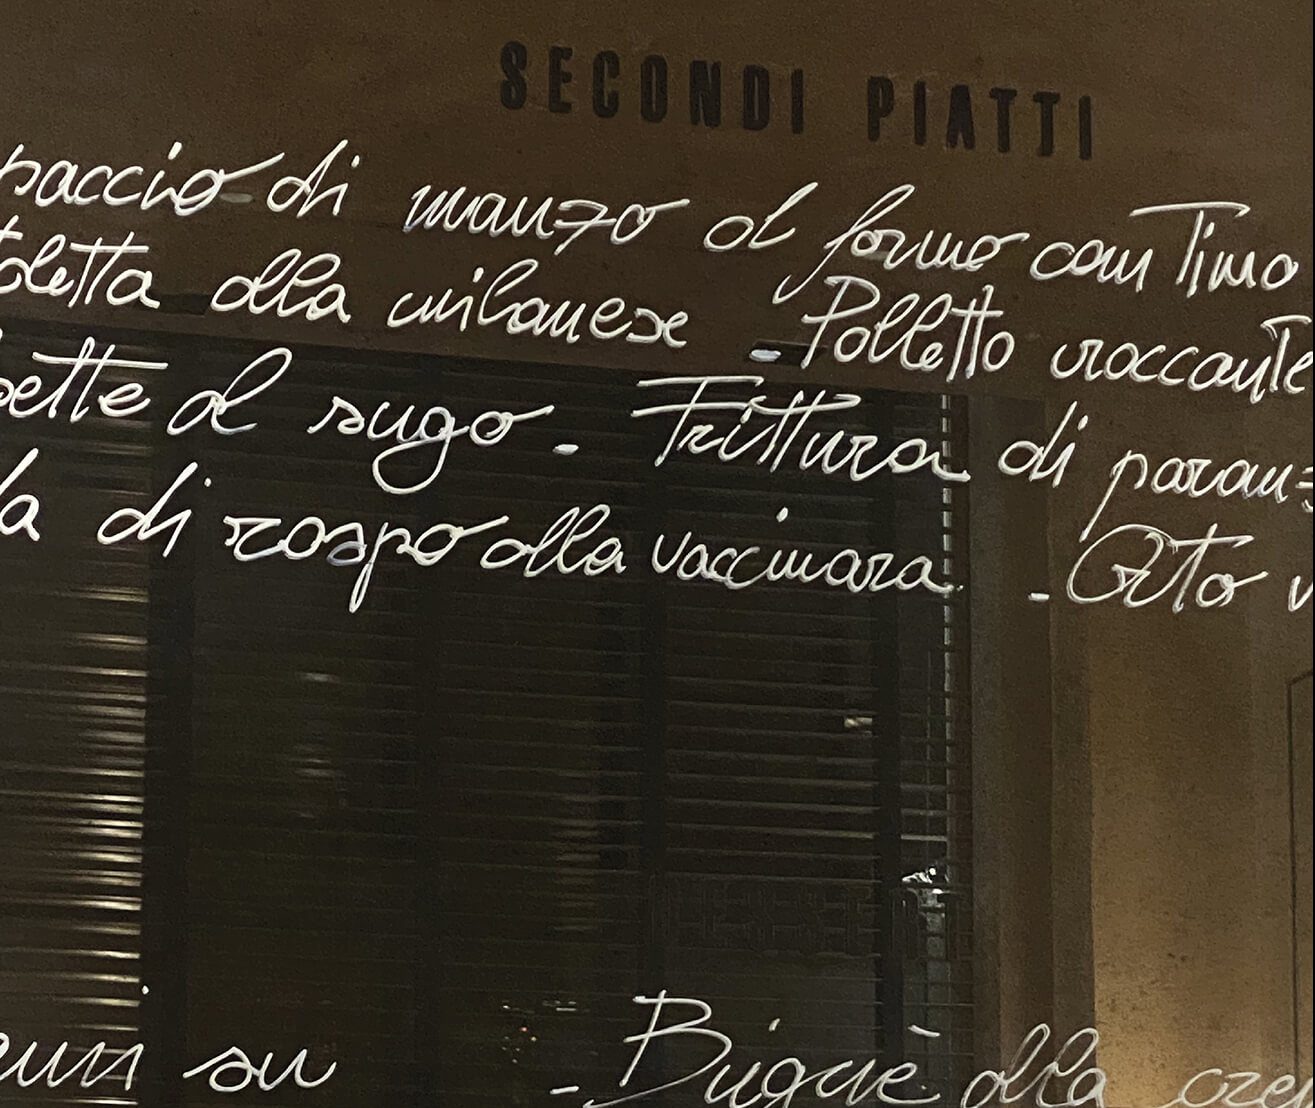 SECONDI PIATTI
paccio di manzo al forno con Timo
toletta alla milanese - Polletto croccante
pette al sugo - Frittura di paranz
da di rospo alla vaccinara - Orto v
su - Bignè alla cre